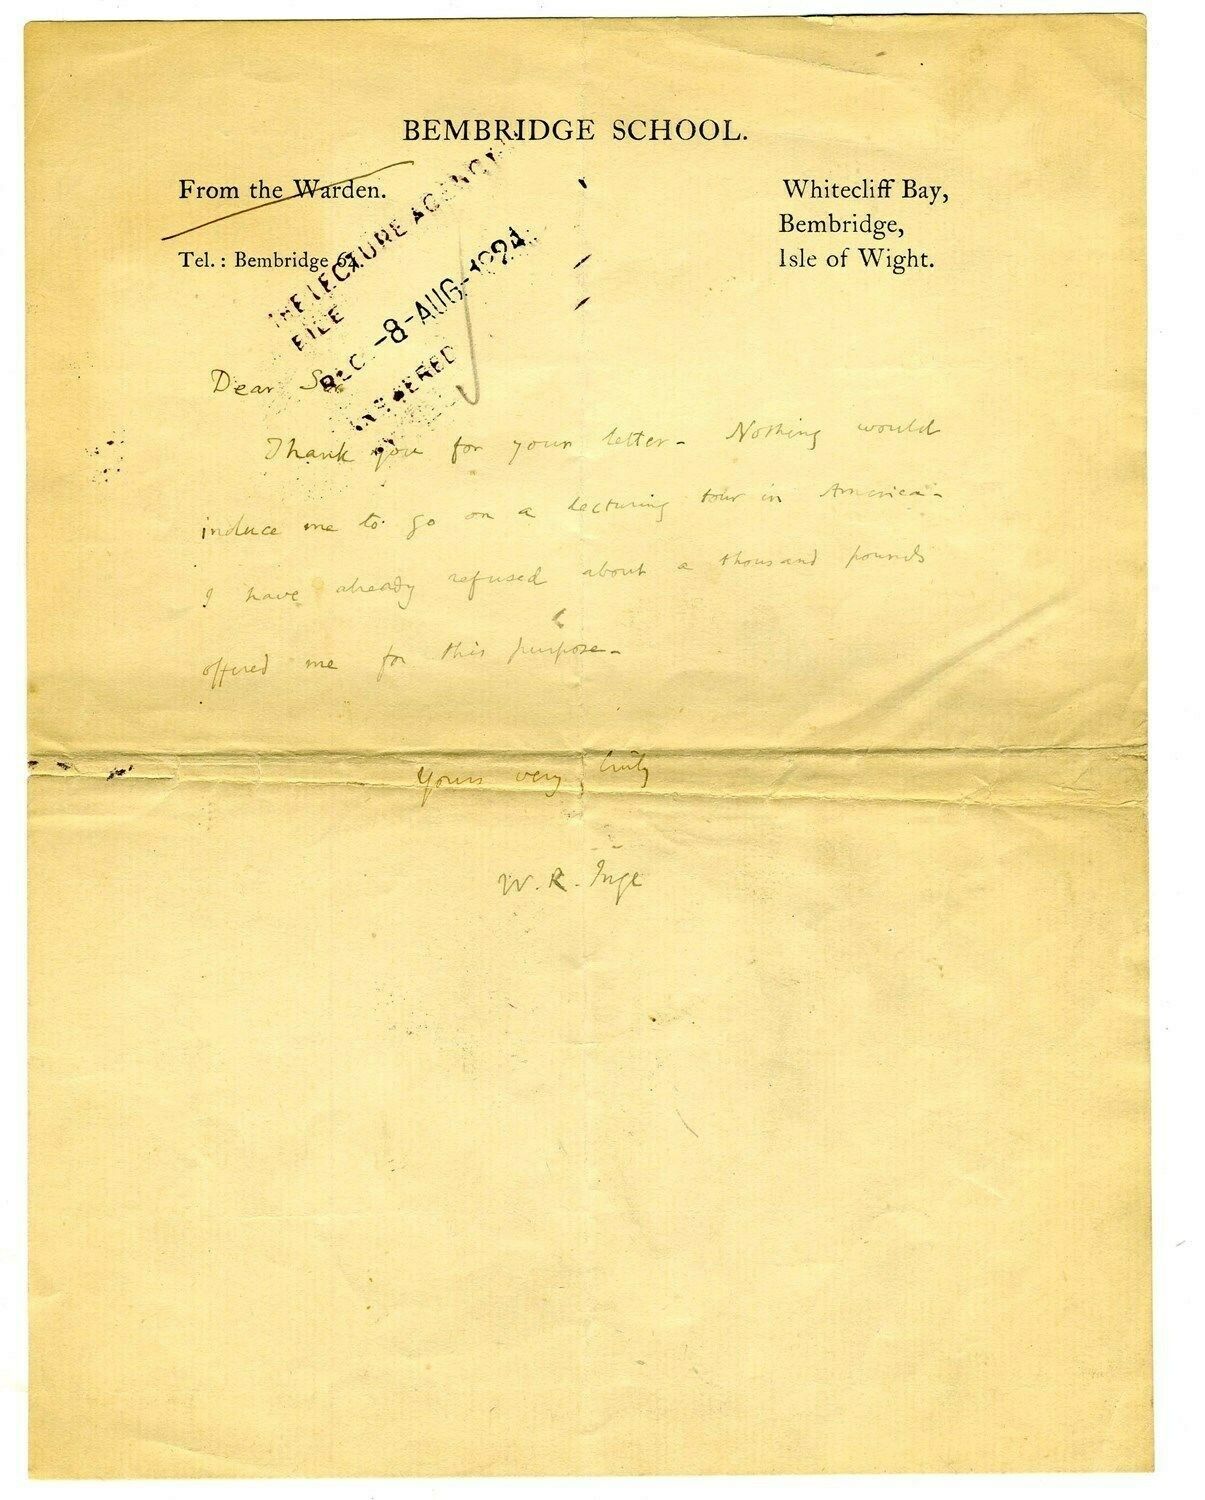 BEMBRIDGE SCHOOL.
From the Warden.
Whitecliff Bay,
Bembridge,
Isle of Wight.
Tel.: Bembridge
THE LECTURE AGENCY
FILE
REC -8-AUG-1924
ANSWERED
Dear Sir
Thank you for your letter - Nothing would
induce me to go on a lecturing tour in America -
I have already refused about a thousand pounds
offered me for this purpose -
Yours very truly
W. R. Inge